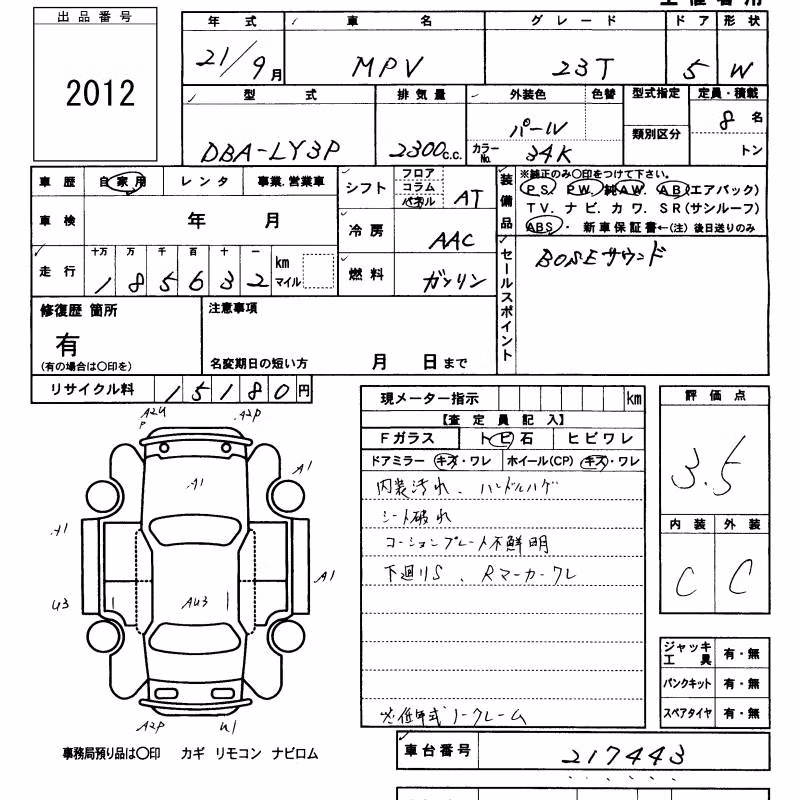 出品番号
2012
年式 車名 グレード ドア 形状
21/9月 MPV 23T 5 W
型式 排気量 外装色 色替 型式指定 定員・積載
DBA-LY3P 2300c.c. パール 類別区分 8名
カラーNo. 34K トン
車歴 自家用 レンタ 事業.営業車
車検 年 月
走行 十万 万 千 百 十 一
185632 km マイル
シフト フロア コラム パネル AT
冷房 AAC
燃料 ガソリン
装備品
※純正のみ〇印をつけて下さい。
PS. PW. 純AW. AB(エアバック)
TV. ナビ. カワ. SR(サンルーフ)
ABS・ 新車保証書←(注)後日送りのみ
セールスポイント
BOSEサウンド
修復歴 箇所
有
(有の場合は〇印を)
注意事項
名変期日の短い方 月 日まで
リサイクル料 15180円
現メーター指示 km
【査定員記入】
Fガラス トビ石 ヒビワレ
ドアミラー キズ・ワレ ホイール(CP) キズ・ワレ
内装汚れ、ハンドルハゲ
シート破れ
コーションプレート不鮮明
下廻りS、Rマーカーワレ
低年式ノークレーム
評価点
3.5
内装 外装
C C
ジャッキ工具 有・無
パンクキット 有・無
スペアタイヤ 有・無
A2U P A2P
A1 A1
A1 A1
U3 AU3
A2P U1
事務局預り品は〇印 カギ リモコン ナビロム
車台番号 217443